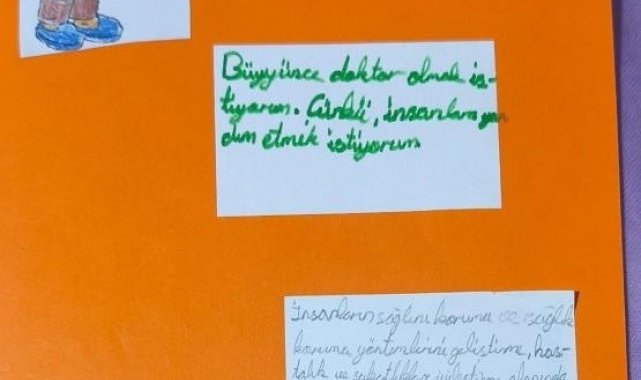 Büyyünce doktor olmak is-
tiyorum. Çünkü, insanlara yar
dım etmik istiyorum
İnsanların sağlını koruma ve sağlık
koruma yöntemlerini geliştirme, has-
talık ve sakatlıkları iyileştirme alanında